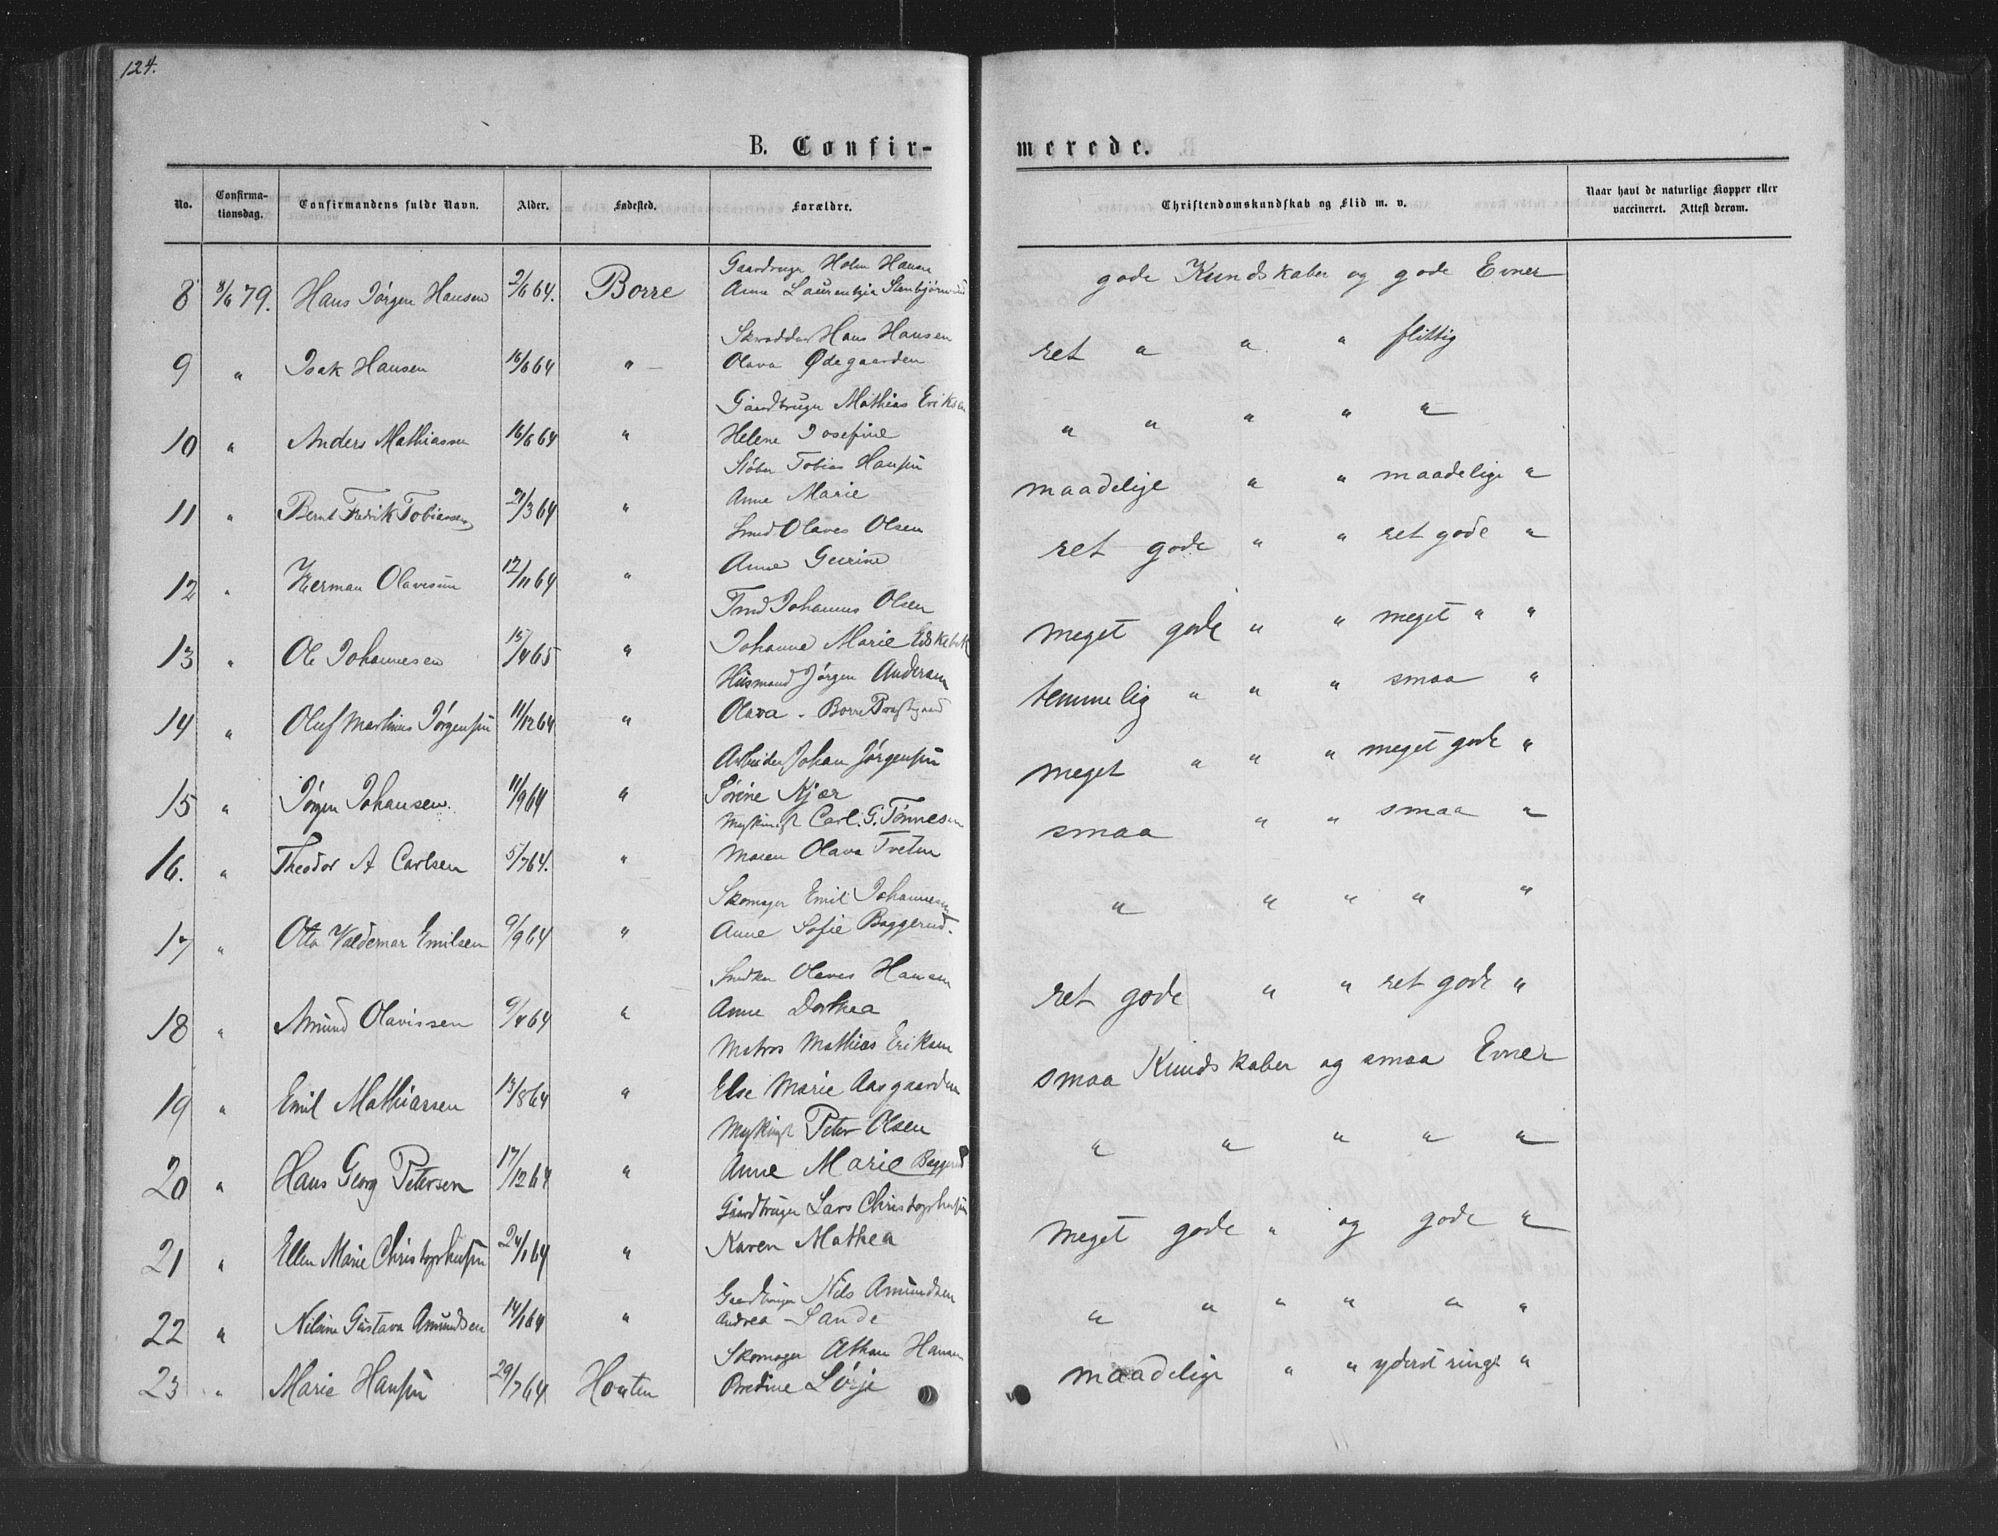 124.
B. Confir-
merede.
No.
Confirma-
tionsdag.
Confirmandens fulde Navn.
Alder.
Fødested.
Forældre.
Christendomskundskab og Flid m. v.
Naar havt de naturlige Kopper eller
vaccineret. Attest derom.
Gaardbruger Hans
8 8/6 79. Hans Jørgen Hansen 2/6 64. Borre Anne Laurentzia gode Kundskaber og gode Evner
Skrædder Hans Hansen
9 " Isak Hansen 16/6 64 " Olava Ødegaarden ret " " " flittig
Gaardbruger Mathias Eriksen
10 " Anders Mathiassen 16/6 64 " Helene Josefine " " " " "
Tobias Hansen
11 " Bernt Fredrik Tobiassen /3 64 " Anne Marie maadelige " " maadelige "
Smed Olaves Olsen
12 " Herman Olavesen 12/11 64 " Anne ret gode " " ret gode "
Johannes Olsen
13 " Ole Johannesen 15/4 65 " Johanna Marie meget gode " " meget " "
Husmand Jørgen Andersen
14 " Oluf Martinus Jørgensen 11/12 64 " Olava - Borre Præstgaard temmelig " " " smaa "
Arbeider Johan Jørgensen
15 " Jørgen Johansen. 11/9 64 " Sørine Kjær meget " " " meget gode "
Carl. G. Tønnesen
16. " Theodor A Carlsen 5/7 64. " Maren Olava Tveten smaa " " smaa "
Skomager Emil Johannesen
17 " Otto Valdemar Emilsen 9/9 64 " Anne Sofie Baggerud. " " " " "
Olaves Hansen
18 " Amund Olavissen 9/4 64 " Anne Dorthea ret gode " " ret gode "
Matros Mathias Eriksen
19 " Emil Mathiassen 13/8 64 " Else Marie Aasgaarden smaa Kundskaber og smaa Evner
Peter Olsen
20 " Hans Georg Petersen 17/12 64 " Anne Marie Baggerud " " " " "
Gaardbruger Lars Christophersen
21 " Ellen Marie Christophersen 24/1 64 " Karen Mathea meget gode " og gode "
Gaardbruger Nils Amundsen
22 " Nilsine Gustava Amundsen 14/1 64 " Andrea Sande " " " " " "
Skomager Hansen
23 " Marie Hansen 29/7 64 Horten Bredine maadelige " " yderst ringe "